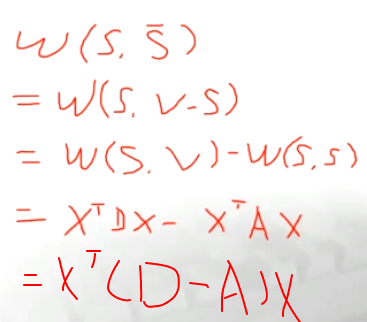 W(S, S̄)
= W(S, V-S)
= W(S, V)-W(S,S)
= XᵀDX- XᵀAX
= Xᵀ(D-A)X